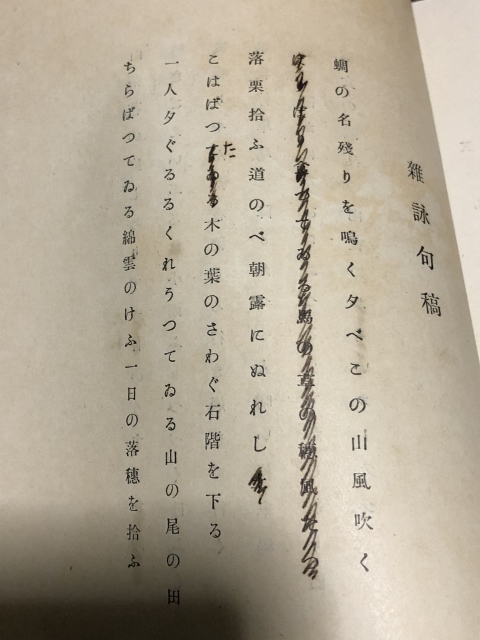 雑詠句稿
蜩の名殘りを鳴く夕べこの山風吹く
落栗拾ふ道のべ朝露にぬれし
こはばつた木の葉のさわぐ石階を下る
一人夕ぐるるくれうつてゐる山の尾の田
ちらばつてゐる綿雲のけふ一日の落穗を拾ふ